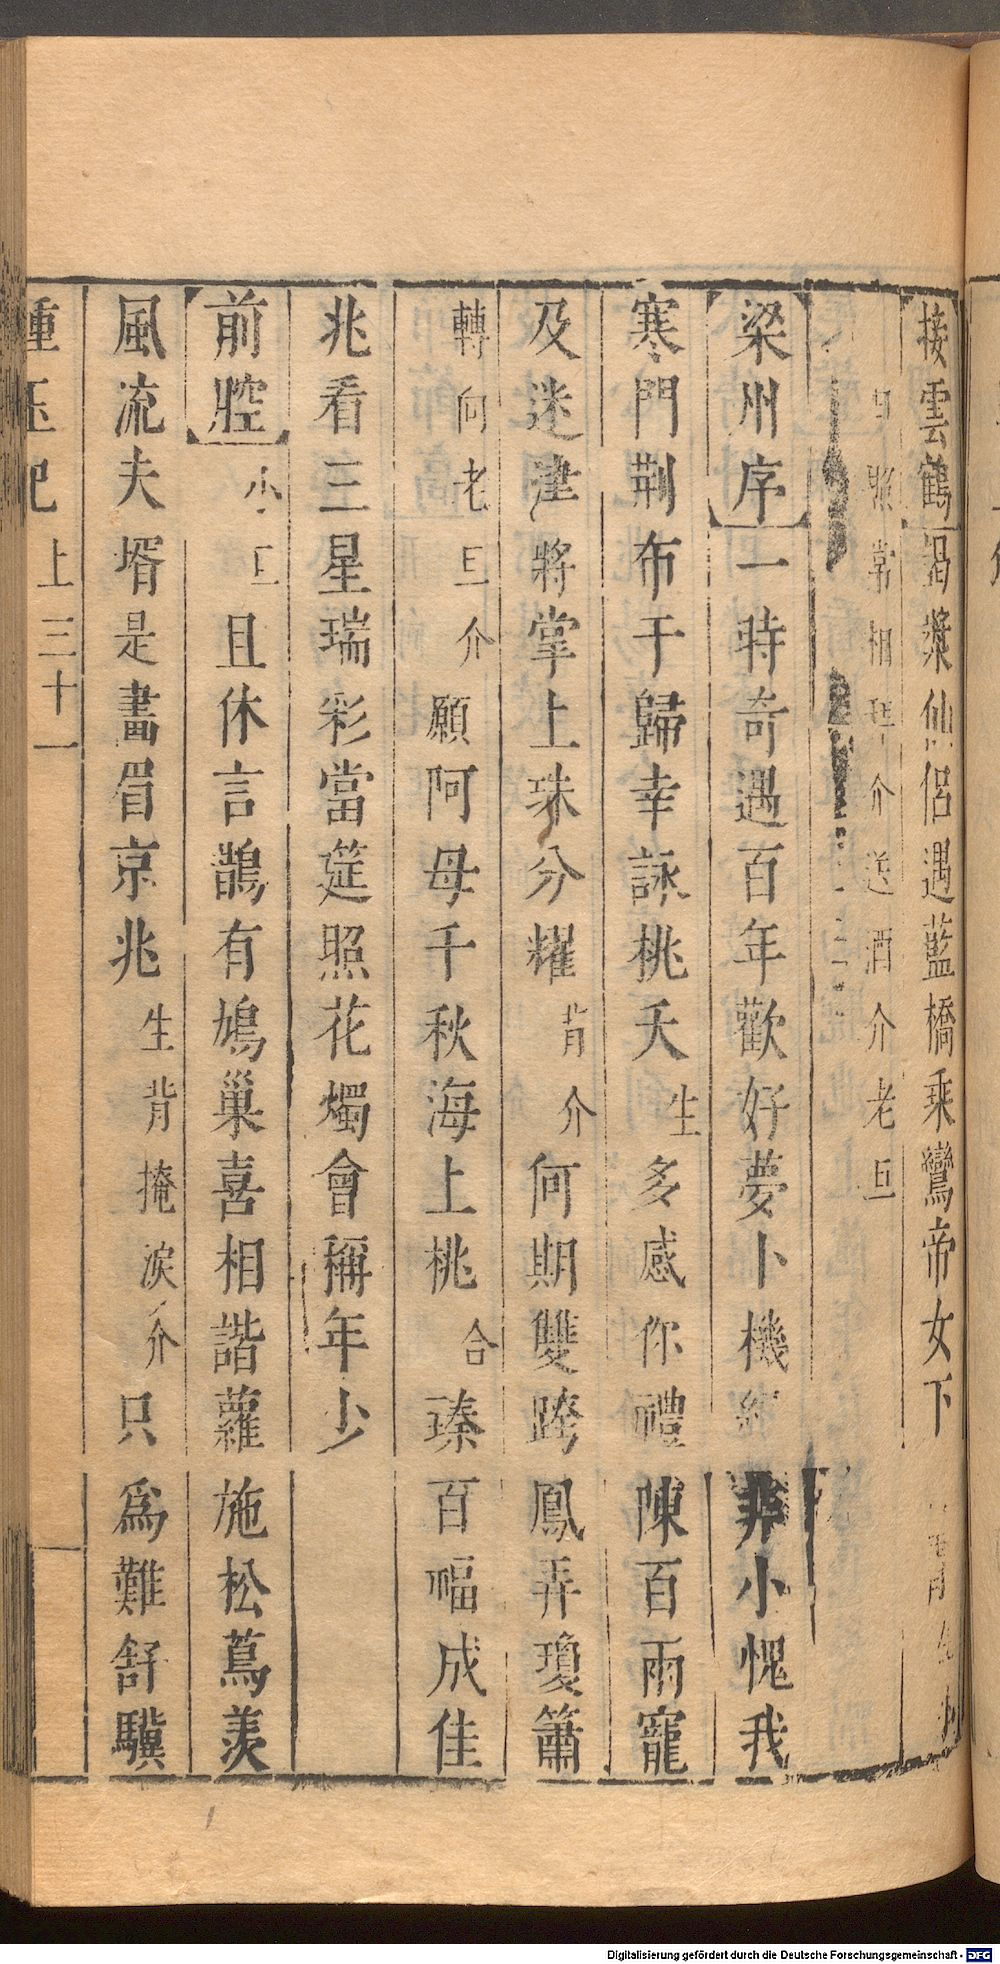 接雲鶴渴漿仙侶遇藍橋乘鸞帝女下
照常相介送酒介老旦
梁州序一時奇遇百年歡好夢卜機非小愧我
寒門荆布于歸幸詠桃夭生多感你禮陳百兩寵
及迷津將掌上珠分耀背介何期雙跨鳳弄瓊簫
轉向老旦介願阿母千秋海上桃合臻百福成佳
兆看三星瑞彩當筵照花燭會稱年少
前腔小旦且休言鵲有鳩巢喜相諧蘿施松蔦羨
風流夫壻是畫眉京兆生背掩淚介只爲難舒驥
種玉記上三十一
Digitalisierung gefördert durch die Deutsche Forschungsgemeinschaft - DFG